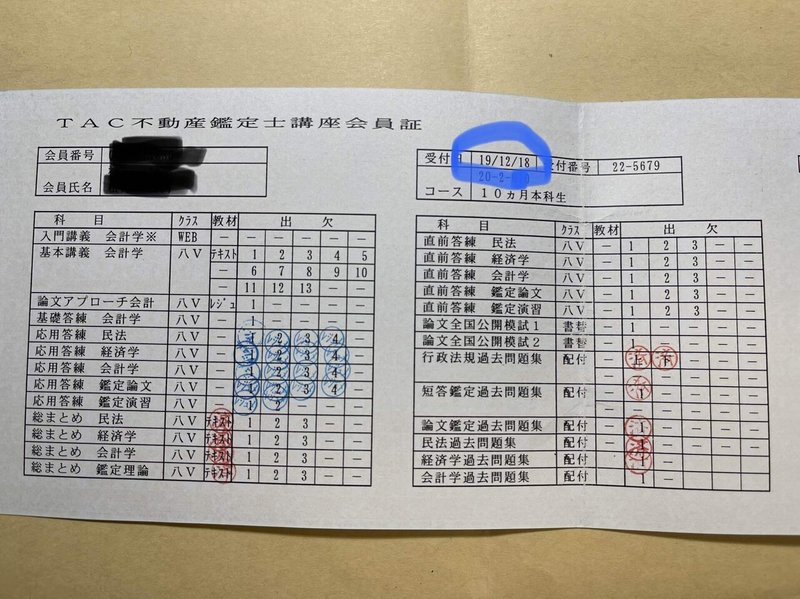 TAC不動産鑑定士講座会員証
会員番号
会員氏名
受付日 19/12/18 受付番号 22-5679
20-2-
コース 10ヵ月本科生
科 目 クラス 教材 出 欠
入門講義 会計学※ WEB － － － － － －
基本講義 会計学 八V テキスト 1 2 3 4 5
－ 6 7 8 9 10
－ 11 12 13 － －
論文アプローチ会計 八V レジュ 1 － － － －
基礎答練 会計学 八V － 1 － － － －
応用答練 民法 八V － 1 2 3 4 －
応用答練 経済学 八V － 1 2 3 4 －
応用答練 会計学 八V － 1 2 3 4 －
応用答練 鑑定論文 八V － 1 2 3 4 －
応用答練 鑑定演習 八V － 1 2 － － －
総まとめ 民法 八V テキスト 1 2 3 － －
総まとめ 経済学 八V テキスト 1 2 3 － －
総まとめ 会計学 八V テキスト 1 2 3 － －
総まとめ 鑑定理論 八V テキスト 1 2 3 － －
科 目 クラス 教材 出 欠
直前答練 民法 八V － 1 2 3 － －
直前答練 経済学 八V － 1 2 3 － －
直前答練 会計学 八V － 1 2 3 － －
直前答練 鑑定論文 八V － 1 2 3 － －
直前答練 鑑定演習 八V － 1 2 3 － －
論文全国公開模試1 書替 － 1 － － － －
論文全国公開模試2 書替 － － － － －
行政法規過去問題集 配付 － 上 下 － － －
短答鑑定過去問題集 配付 － 1 － － － －
論文鑑定過去問題集 配付 － 1 － － － －
民法過去問題集 配付 － 1 － － － －
経済学過去問題集 配付 － 1 － － － －
会計学過去問題集 配付 － 1 － － － －